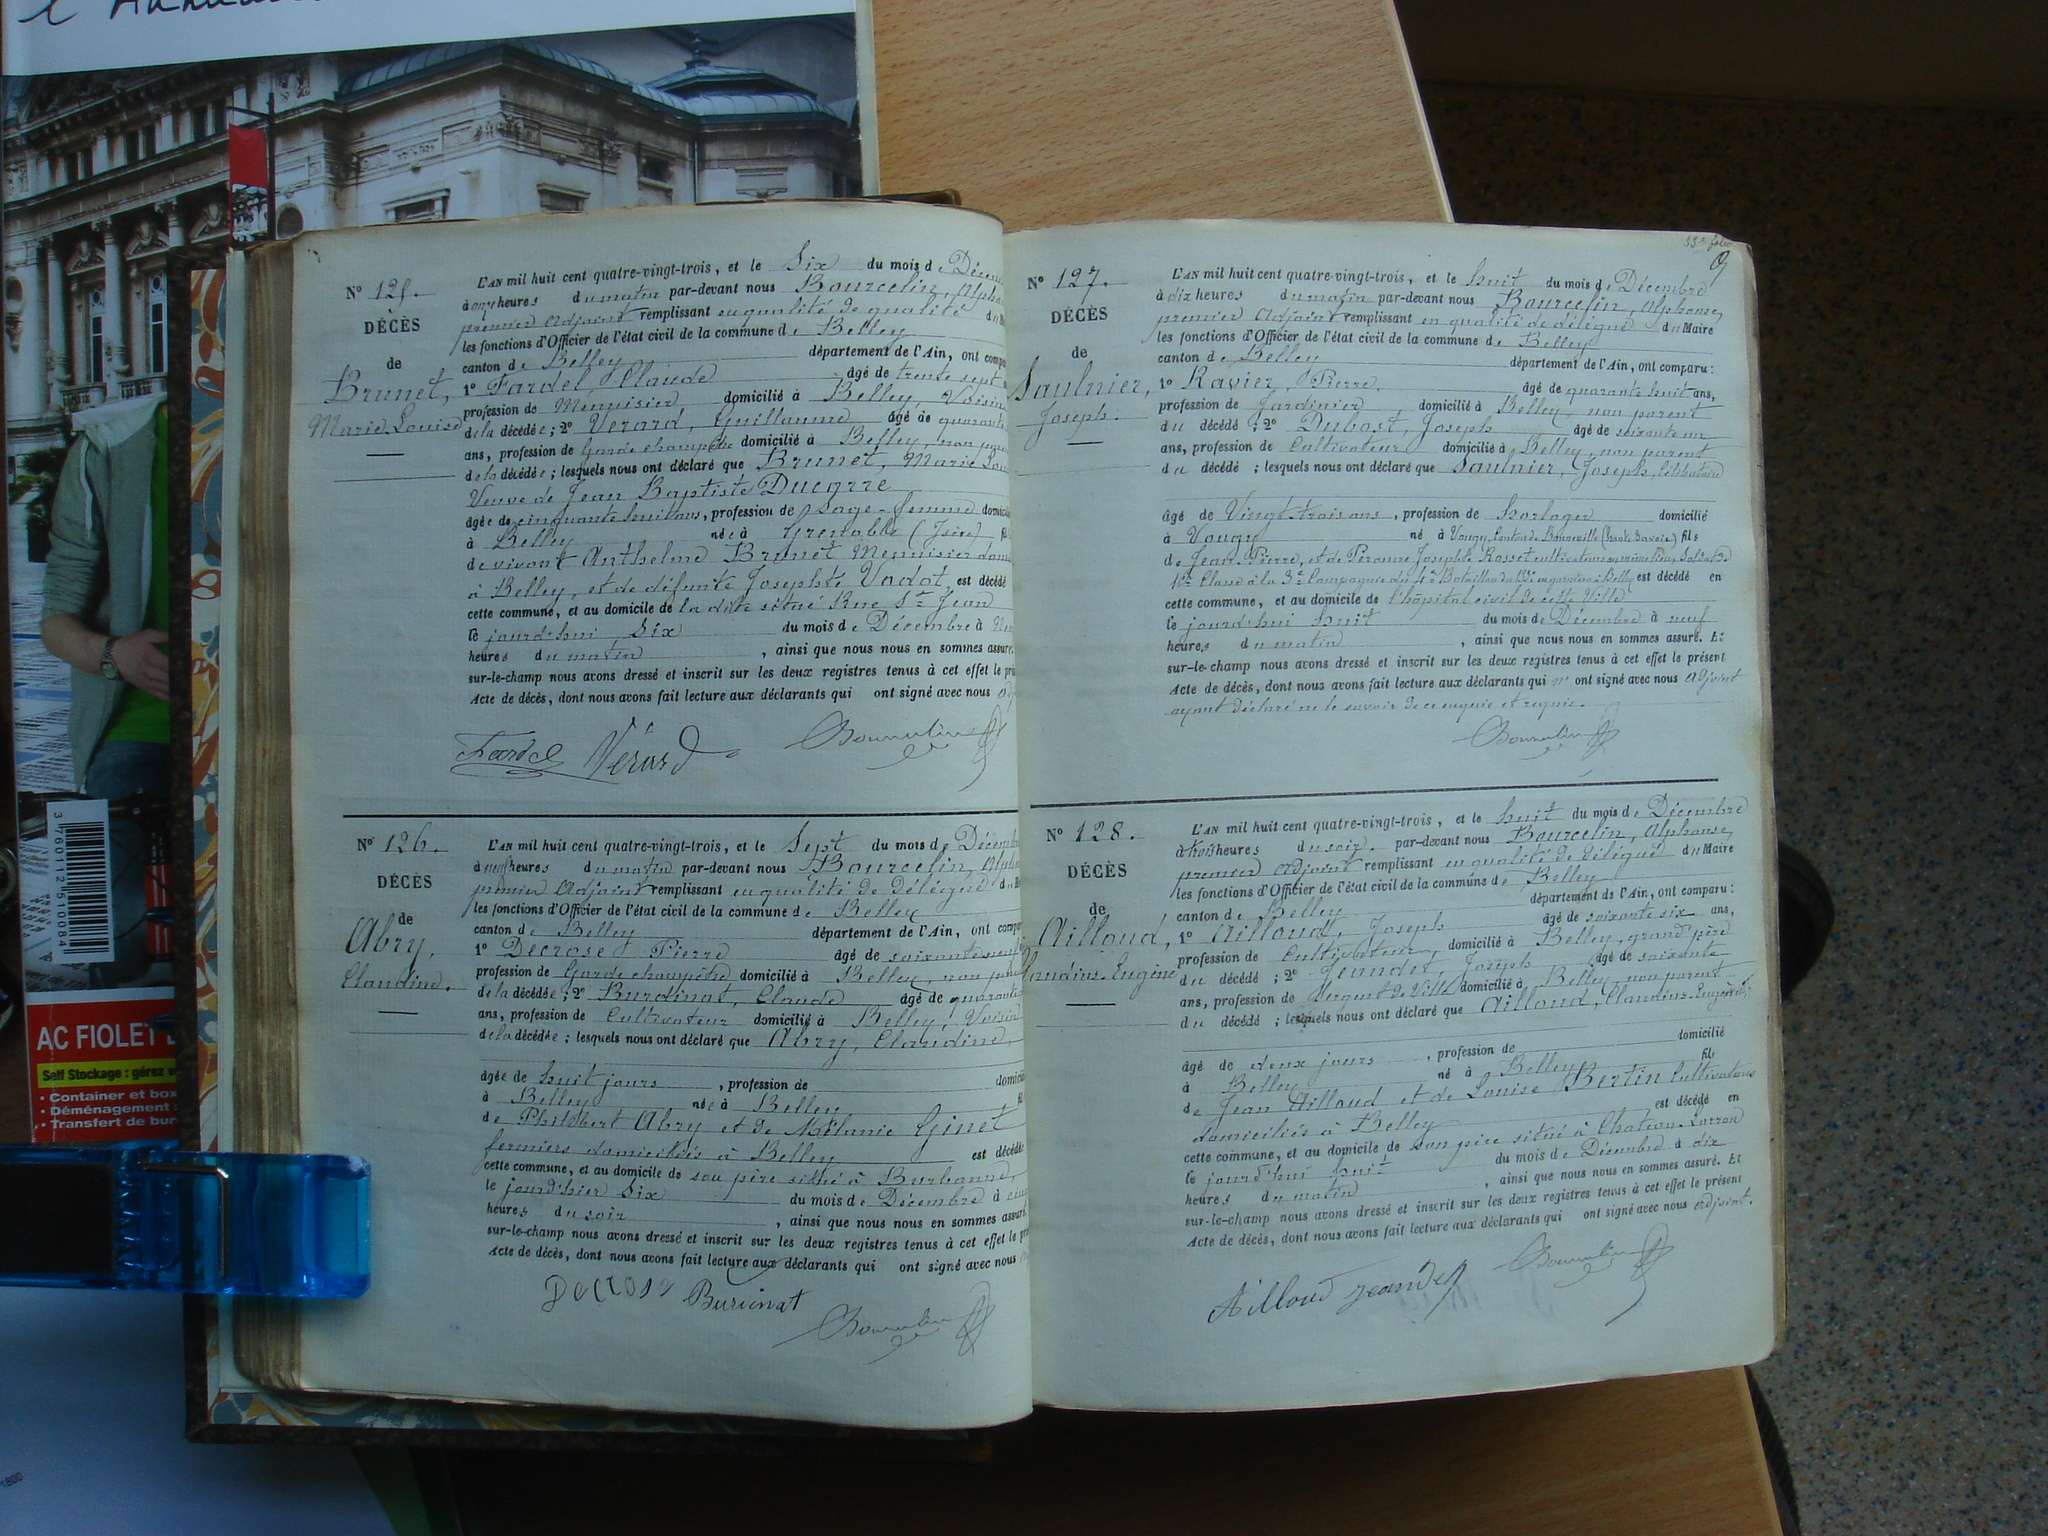 Nº 125.
DÉCÈS
de
Brunet,
Marie Louise
L'AN mil huit cent quatre-vingt-trois, et le Six du mois de
à onze heures du matin par-devant nous Bourcelin,
premier Adjoint remplissant en qualité de qualité du
les fonctions d'Officier de l'état civil de la commune de Belley
canton de Belley département de l'Ain, ont
1º Fardel, Claude âgé de trente sept
profession de Menuisier domicilié à Belley, Voisin
de la décédée ; 2º Verard, Guillaume âgé de quarante
ans, profession de Garde champêtre domicilié à Belley, non
de la décédée ; lesquels nous ont déclaré que Brunet, Marie
Veuve de Jean Baptiste Ducarre
âgée de cinquante huit ans, profession de Sage-femme
à Belley née à Grenoble (Isère)
de vivant Anthelme Brunet Menuisier
à Belley, et de défunte Josephte Vadot, est décédé
cette commune, et au domicile de la dite situé Rue St Jean
le jourd'hui Six du mois de Décembre à
heures du matin , ainsi que nous nous en sommes assuré.
sur-le-champ nous avons dressé et inscrit sur les deux registres tenus à cet effet le
Acte de décès, dont nous avons fait lecture aux déclarants qui ont signé avec nous
Fardel Vérard
Nº 126.
DÉCÈS
de
Abry,
Claudine.
L'AN mil huit cent quatre-vingt-trois, et le Sept du mois de
à neuf heures du matin par-devant nous Bourcelin,
premier Adjoint remplissant en qualité de délégué du
les fonctions d'Officier de l'état civil de la commune de Belley
canton de Belley département de l'Ain, ont
1º Decrose Pierre âgé de soixante
profession de Garde champêtre domicilié à Belley, non
de la décédée ; 2º Burdinat, Claude âgé de quarante
ans, profession de Cultivateur domicilié à Belley, Voisin
de la décédée ; lesquels nous ont déclaré que Abry, Claudine,
âgée de huit jours , profession de
à Belley née à Belley
de Philibert Abry et de Mélanie Ginet
fermiers domiciliés à Belley est décédé
cette commune, et au domicile de son père situé à
le jourd'hier Six du mois de Décembre à
heures du soir , ainsi que nous nous en sommes assuré.
sur-le-champ nous avons dressé et inscrit sur les deux registres tenus à cet effet le
Acte de décès, dont nous avons fait lecture aux déclarants qui ont signé avec nous
Decrose Burdinat
Nº 127.
DÉCÈS
de
Saulnier,
Joseph.
L'AN mil huit cent quatre-vingt-trois, et le huit du mois de Décembre
à dix heures du matin par-devant nous Bourcelin, Alphonse,
premier Adjoint remplissant en qualité de délégué du Maire
les fonctions d'Officier de l'état civil de la commune de Belley
canton de Belley département de l'Ain, ont comparu :
1º Ravier, Pierre, âgé de quarante huit ans,
profession de Jardinier domicilié à Belley non parent
du décédé ; 2º Dubost, Joseph âgé de soixante un
ans, profession de Cultivateur domicilié à Belley, non parent
du décédé ; lesquels nous ont déclaré que Saulnier, Joseph, Célibataire
âgé de Vingt-trois ans, profession de horloger domicilié
à Vougy né à Vougy, Canton de Bonneville (Haute Savoie) fils
de Jean Pierre, et de Péronne Josephte Rosset cultivateurs au même lieu, Soldat de
est décédé en
cette commune, et au domicile de l'hôpital civil de cette Ville
le jourd'hui huit du mois de Décembre à neuf
heures du matin , ainsi que nous nous en sommes assuré. Et
sur-le-champ nous avons dressé et inscrit sur les deux registres tenus à cet effet le présent
Acte de décès, dont nous avons fait lecture aux déclarants qui n'ont signé avec nous adjoint
ayant déclaré ne le savoir de ce enquis et requis.
Nº 128.
DÉCÈS
de
Ailloud,
Claudius-Eugène
L'AN mil huit cent quatre-vingt-trois, et le huit du mois de Décembre
à trois heures du soir par-devant nous Bourcelin, Alphonse,
premier Adjoint remplissant en qualité de délégué du Maire
les fonctions d'Officier de l'état civil de la commune de Belley
canton de Belley département de l'Ain, ont comparu :
1º Ailloud, Joseph âgé de soixante six ans,
profession de Cultivateur, domicilié à Belley, grand père
du décédé ; 2º Jeandet, Joseph âgé de soixante
ans, profession de Sergent de Ville domicilié à Belley, non parent
du décédé ; lesquels nous ont déclaré que Ailloud, Claudius-Eugène,
âgé de deux jours , profession de domicilié
à Belley né à Belley fils
de Jean Ailloud et de Louise Bertin Cultivateurs
domiciliés à Belley est décédé en
cette commune, et au domicile de son père situé à
le jourd'hui huit du mois de Décembre à dix
heures du matin , ainsi que nous nous en sommes assuré. Et
sur-le-champ nous avons dressé et inscrit sur les deux registres tenus à cet effet le présent
Acte de décès, dont nous avons fait lecture aux déclarants qui ont signé avec nous adjoint.
Ailloud Jeandet
3 760112 510084
AC FIOLET
Self Stockage : gérez
• Container et box
• Déménagement
• Transfert de
1800